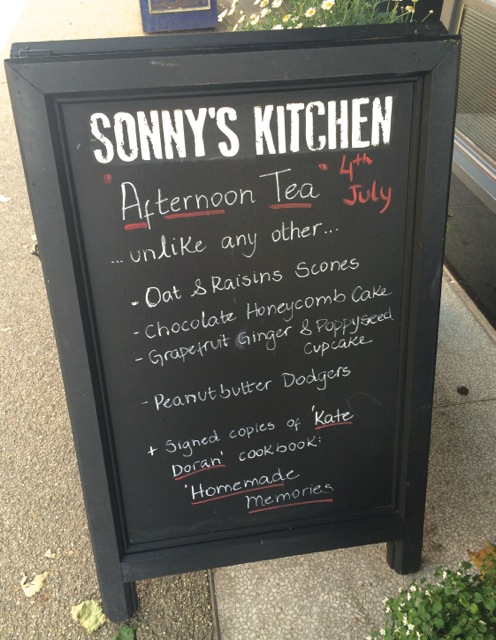 SONNY'S KITCHEN
"Afternoon Tea" 4th July
...unlike any other...
- Oat & Raisins Scones
- Chocolate Honeycomb Cake
- Grapefruit Ginger & Poppyseed
Cupcake
- Peanutbutter Dodgers
+ Signed copies of 'Kate
Doran' cookbook:
'Homemade
Memories